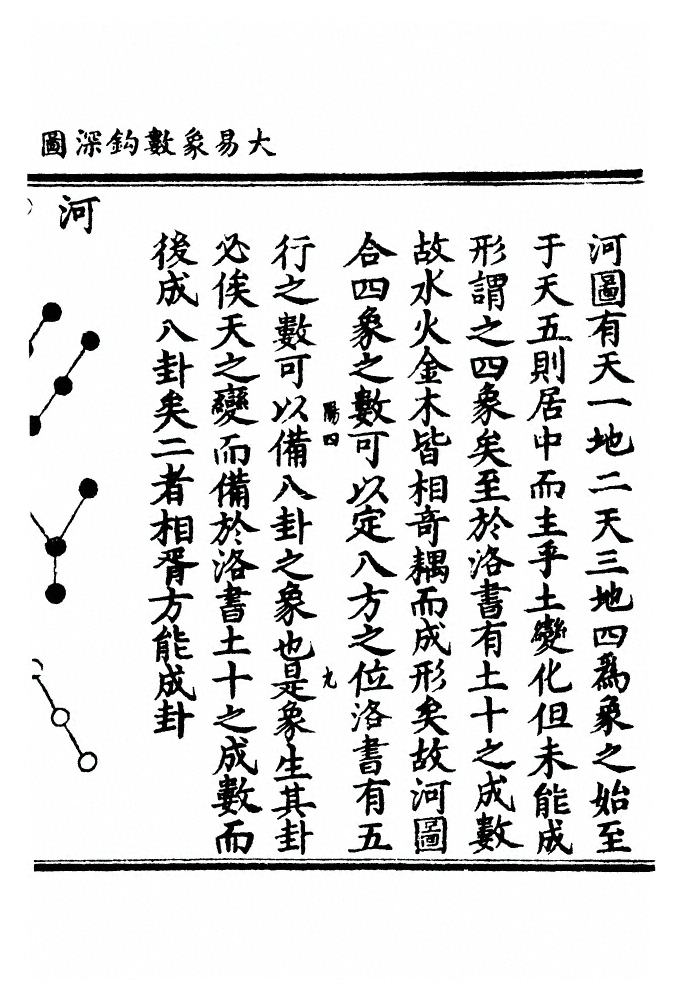 大易象數鈎深圖
河圖有天一地二天三地四爲象之始至
于天五則居中而主乎土變化但未能成
形謂之四象矣至於洛書有土十之成數
故水火金木皆相奇耦而成形矣故河圖
合四象之數可以定八方之位洛書有五
陽四
九
行之數可以備八卦之象也是象生其卦
必俟天之變而備於洛書土十之成數而
後成八卦矣二者相胥方能成卦
河